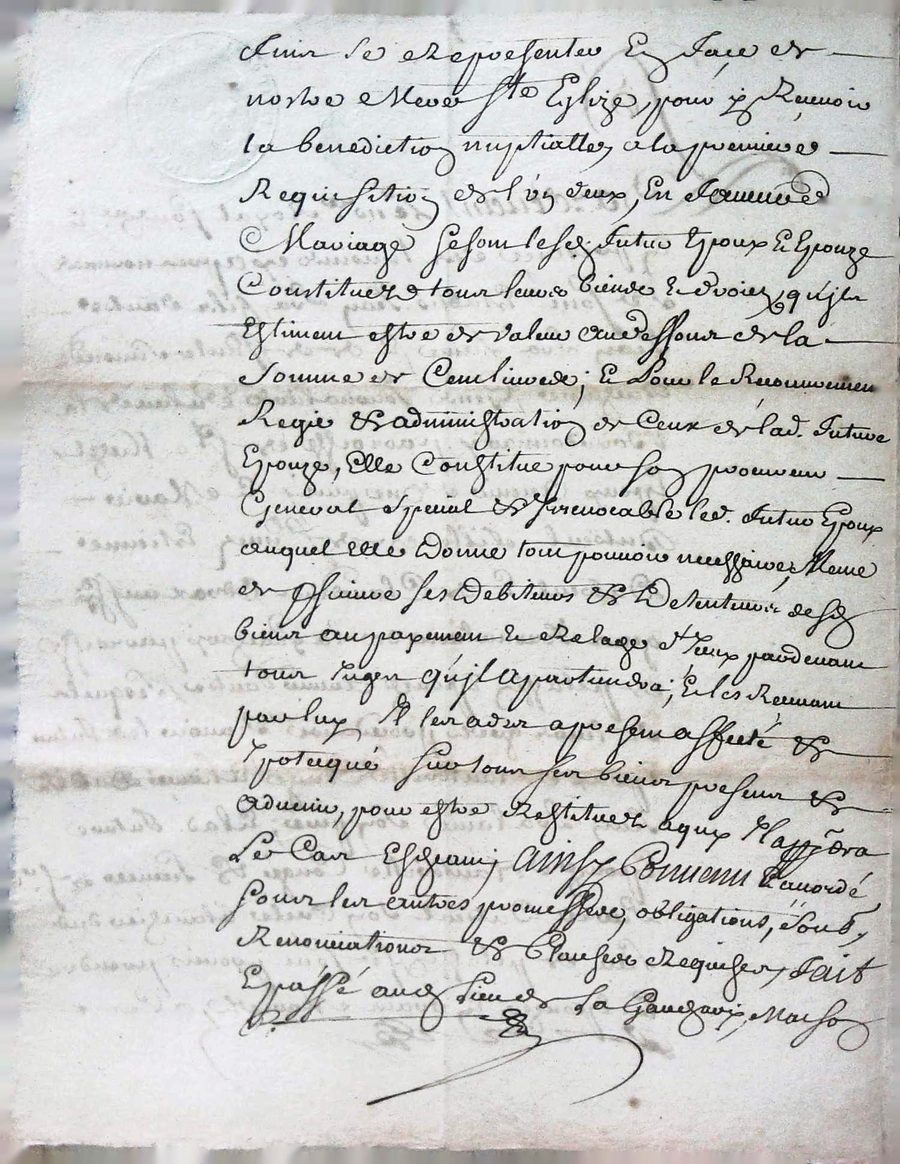 Finir se Representer En face de
nostre Mere Ste Eglize, pour y Recevoir
la benediction nuptialle, a la premiere
Requisition de l'un d'eux, En faveur de
Mariage se sont lesd. futur Epoux Et Epouze
Constitues tous leurs biens Et droits, qu'jls
Estiment estre de valeur audessous de la
Somme de Cent livres; Et Pour le Recouvrement
Regie & administration de Ceux de lad. future
Epouze, Elle Constitue pour son procureur
General special & Irrevocable led. futur Epoux
auquel Elle Donne tout pouvoir necessaire, Meme
de ses Debiteurs & Detenteurs desd
biens au payement Et Relage d'Iceux pardevant
tous Juges qu'jl apartiendra; Et les Recevant
par luy Il les a des a present affecté &
Ipotequé sur tous ses biens presens &
advenir, pour estre Restitues a qui Il app̃dra
Le Cas Escheant; ainsy Convenu Et acordé
sous les autres promesses, obligations, soub.
Renonciations & Clauses Requises, fait
Et passé aud Lieu de La Maison